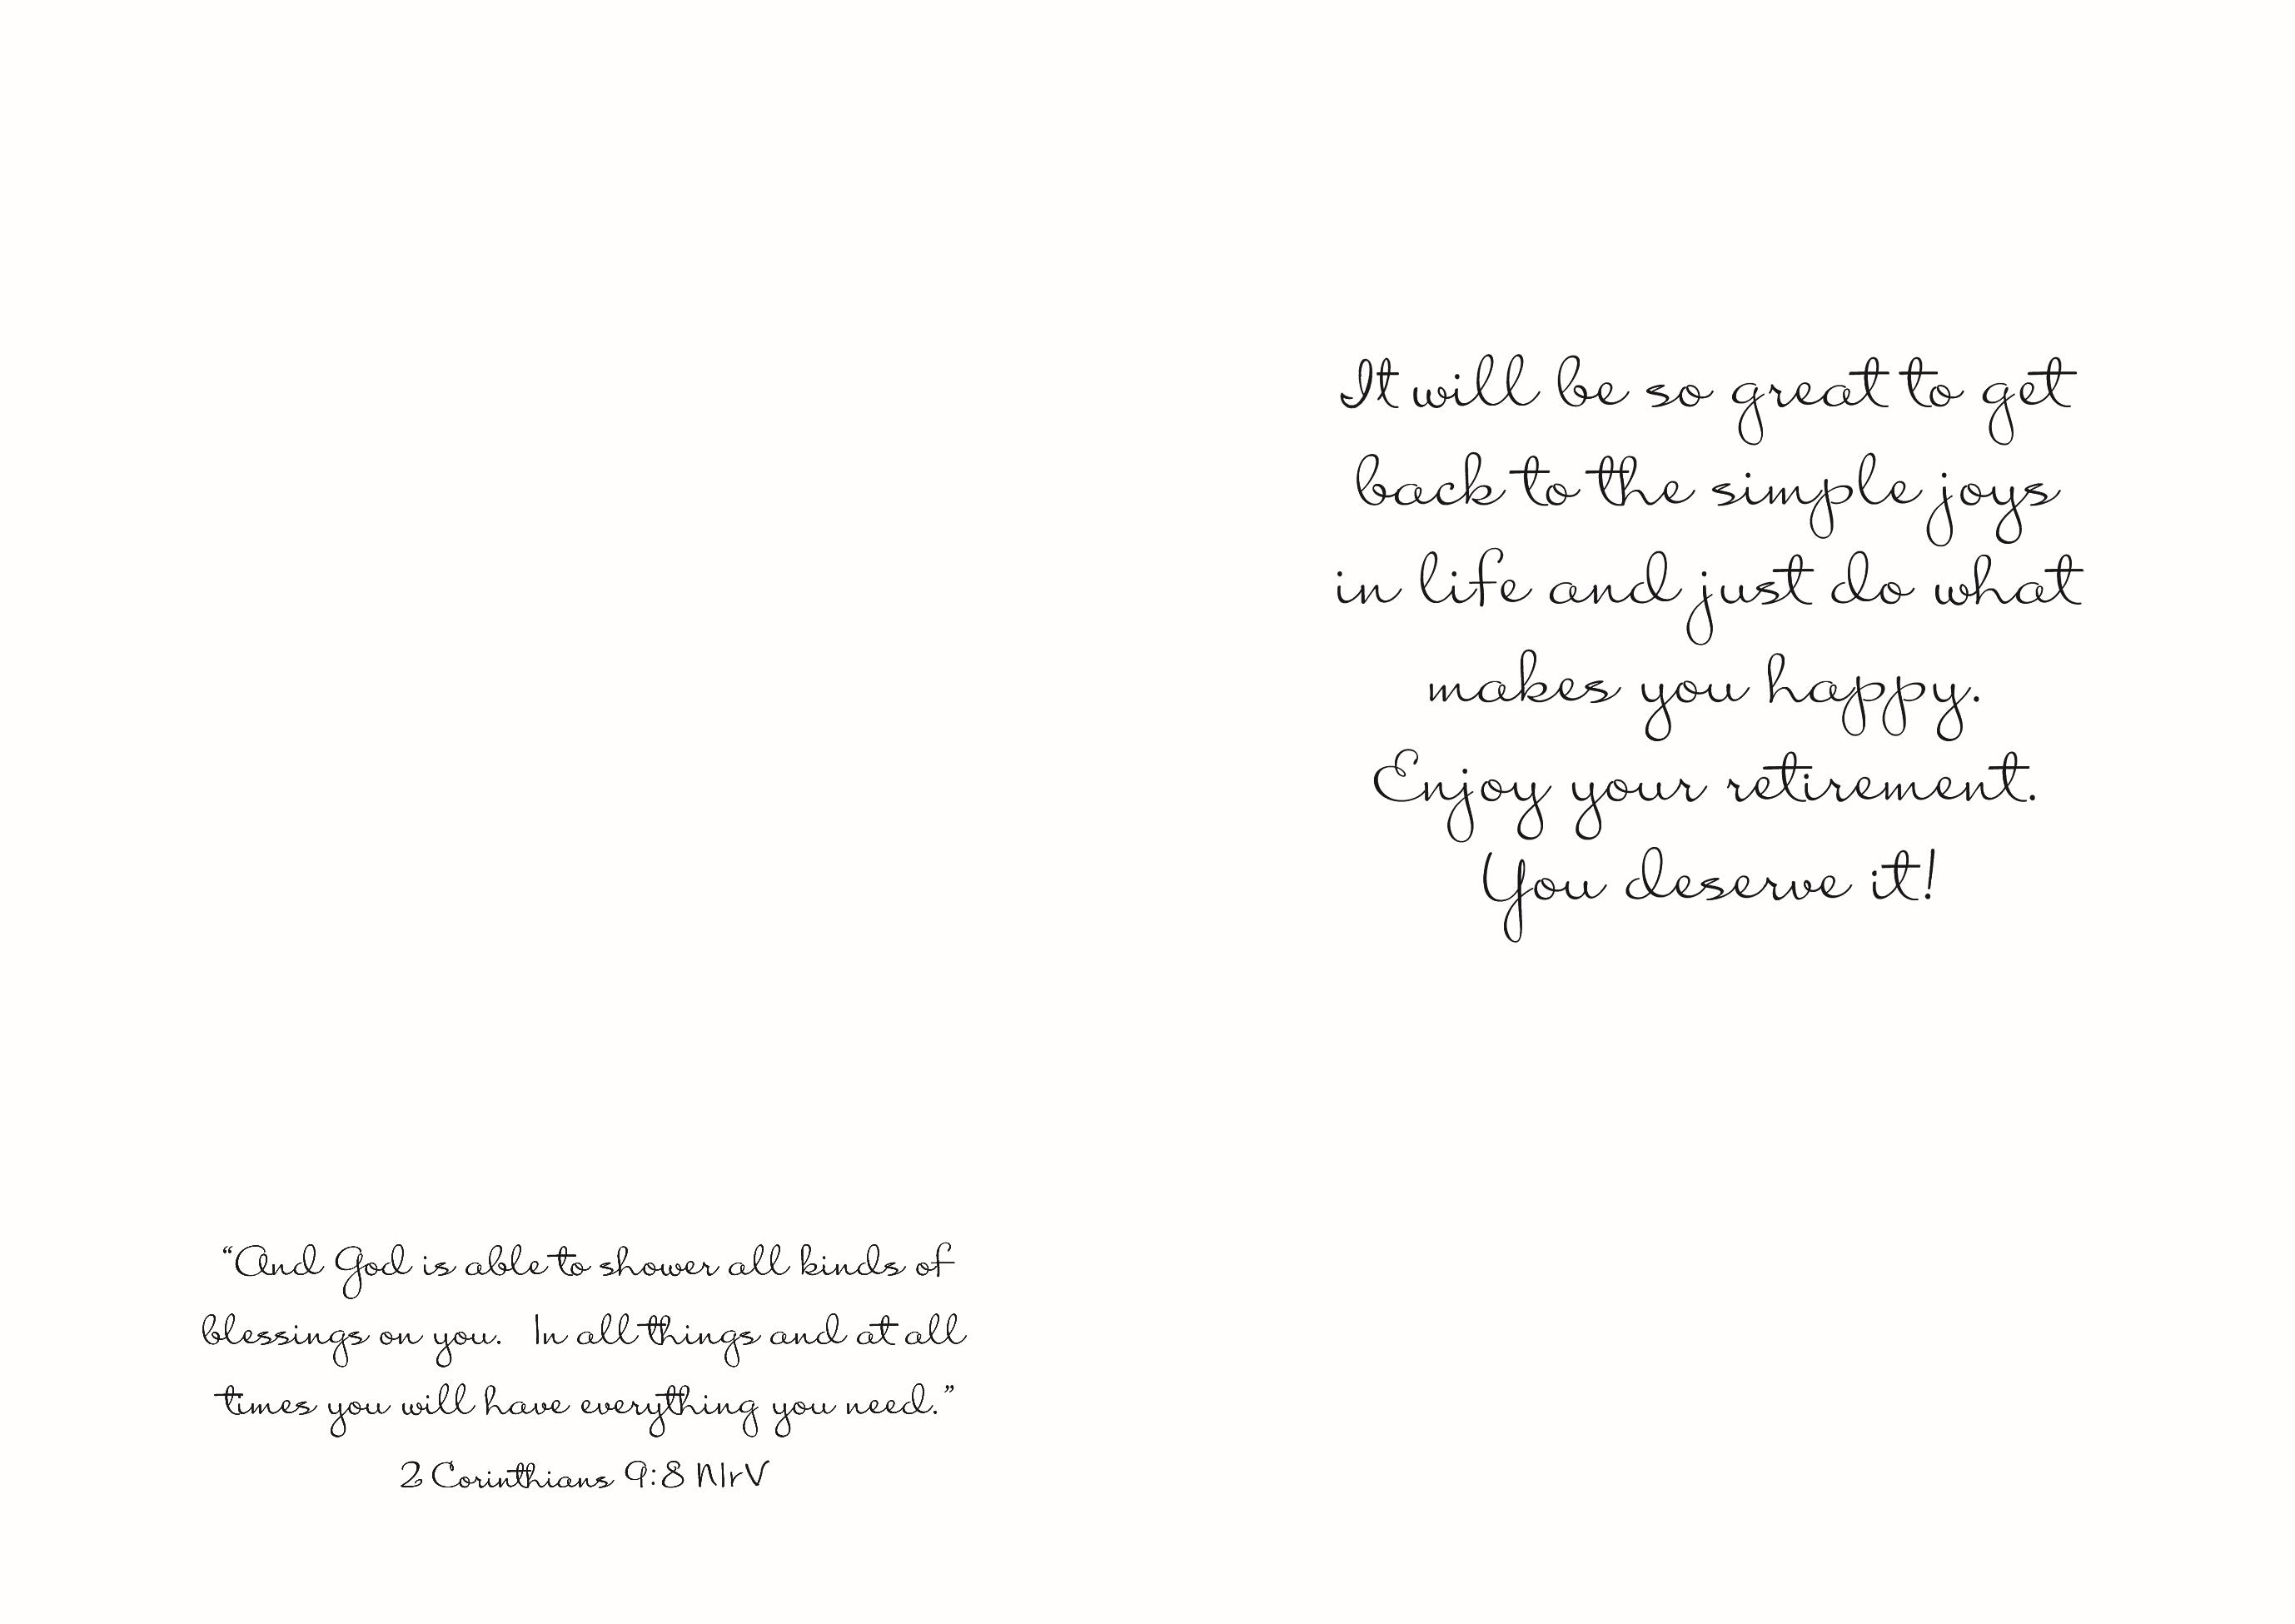 It will be so great to get
back to the simple joys
in life and just do what
makes you happy.
Enjoy your retirement.
You deserve it!
“And God is able to shower all kinds of
blessings on you.  In all things and at all
times you will have everything you need.”
2 Corinthians 9:8 NIrV